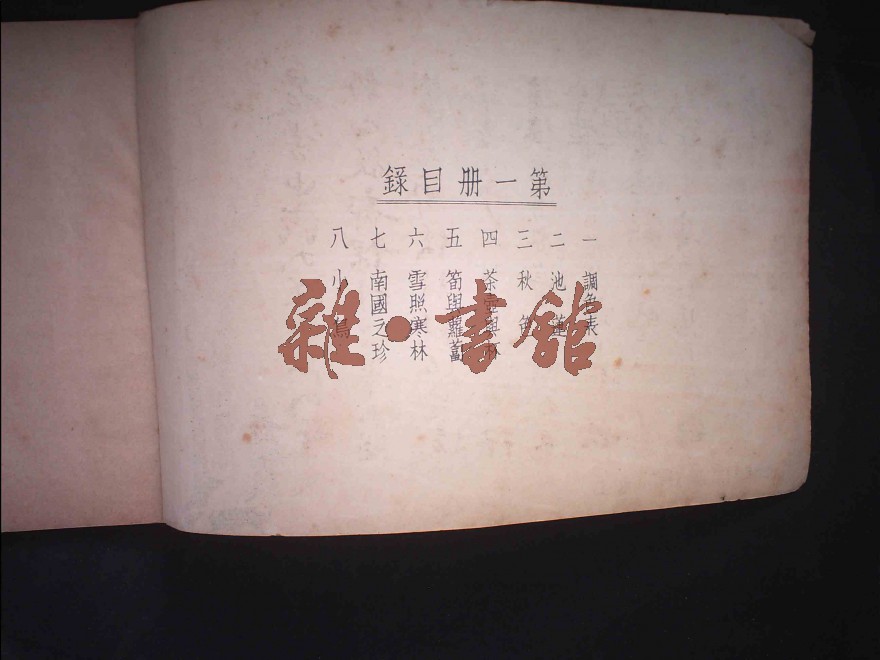 第一册目錄
一 調色表
二 池蓮
三 秋色
四 茶壺與杯
五 筍與蘿蔔
六 雪照寒林
七 南國之珍
八 小鳥
雜·書館